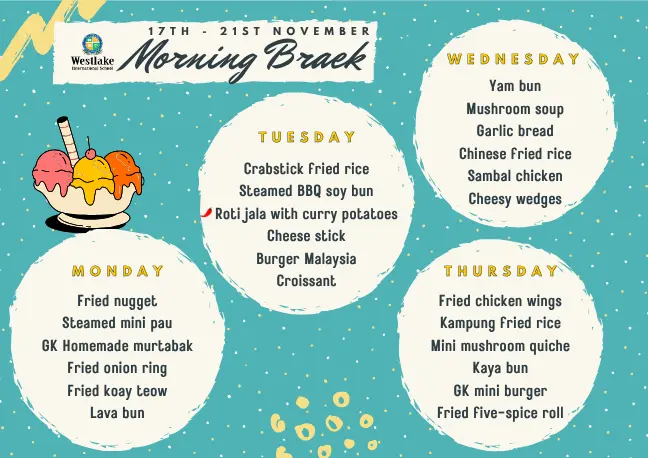 17TH - 21ST NOVEMBER
Westlake
International School
Morning Braek
MONDAY
Fried nugget
Steamed mini pau
GK Homemade murtabak
Fried onion ring
Fried koay teow
Lava bun
TUESDAY
Crabstick fried rice
Steamed BBQ soy bun
Roti jala with curry potatoes
Cheese stick
Burger Malaysia
Croissant
WEDNESDAY
Yam bun
Mushroom soup
Garlic bread
Chinese fried rice
Sambal chicken
Cheesy wedges
THURSDAY
Fried chicken wings
Kampung fried rice
Mini mushroom quiche
Kaya bun
GK mini burger
Fried five-spice roll